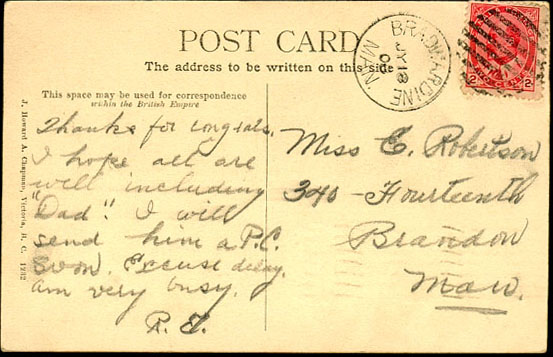 POST CARD
The address to be written on this side
This space may be used for correspondence
within the British Empire
Thanks for congrats.
I hope all are
well including
"Dad". I will
send him a P.C.
soon. Excuse delay.
am very busy.
Miss E. Robertson
340 - Fourteenth
Brandon
Man.
BRADWARDINE
JY 18
MAN
2 2
J. Howard A. Chapman, Victoria, B. C. 1732